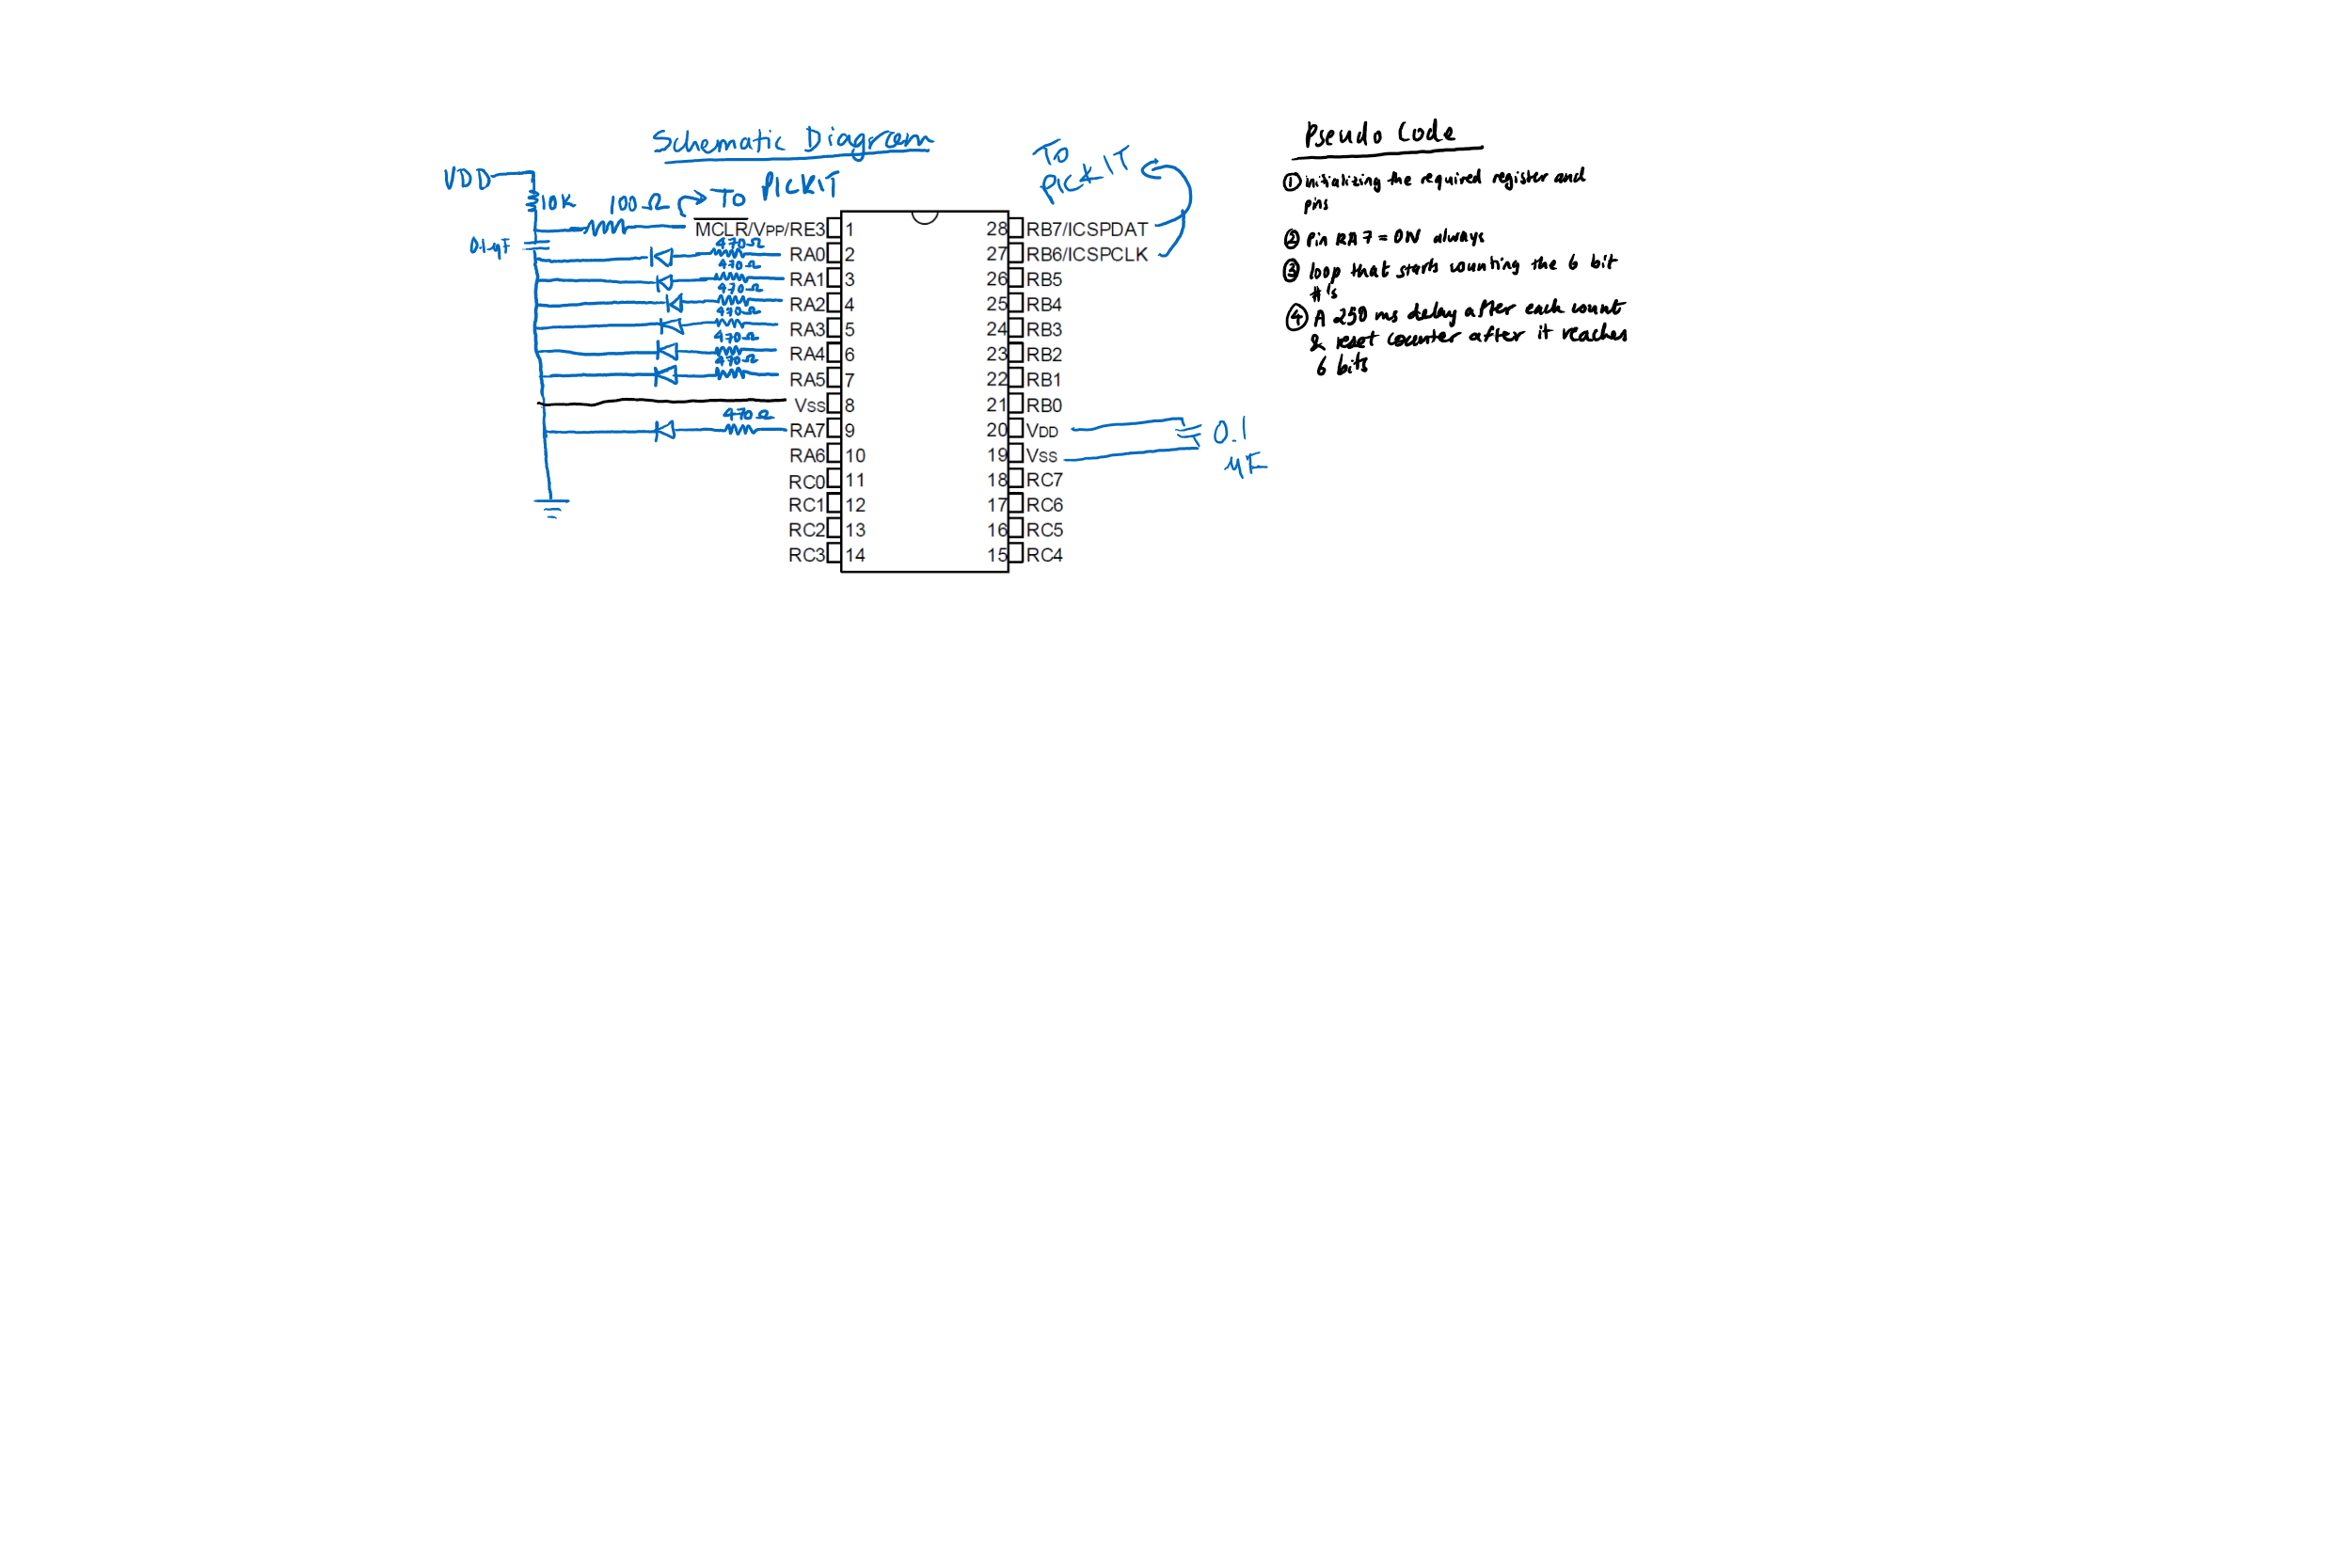 Schematic Diagram
VDD
10K
100Ω
TO PICKIT
0.1μF
470Ω
470Ω
470Ω
470Ω
470Ω
470Ω
470Ω
MCLR/VPP/RE3 1
RA0 2
RA1 3
RA2 4
RA3 5
RA4 6
RA5 7
Vss 8
RA7 9
RA6 10
RC0 11
RC1 12
RC2 13
RC3 14
TO
PICKIT
28 RB7/ICSPDAT
27 RB6/ICSPCLK
26 RB5
25 RB4
24 RB3
23 RB2
22 RB1
21 RB0
20 VDD
19 Vss
18 RC7
17 RC6
16 RC5
15 RC4
0.1
μF
Pseudo Code
① initializing the required register and
pins
② Pin RA7 = ON always
③ loop that starts counting the 6 bit
#'s
④ A 250 ms delay after each count
& reset counter after it reaches
6 bits